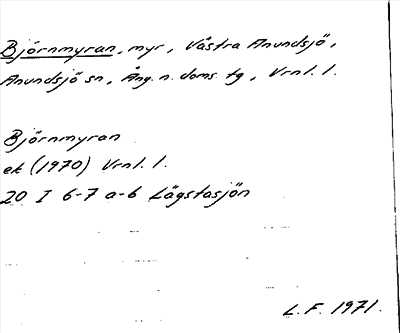 Björnmyran, myr, Västra Anundsjö,
Anundsjö sn, Ång. n. doms. tg, Vrnl. l.
Björnmyran
ek (1970) Vrnl. l.
20 I 6-7 a-b Lägstasjön
L.F. 1971.